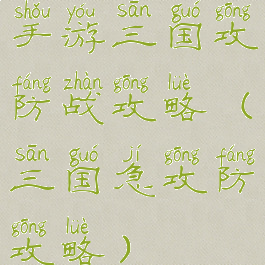 shǒu yóu sān guó gōng
手游三国攻
fáng zhàn gōng lüè
防战攻略（
sān guó jí gōng fáng
三国急攻防
gōng lüè
攻略）